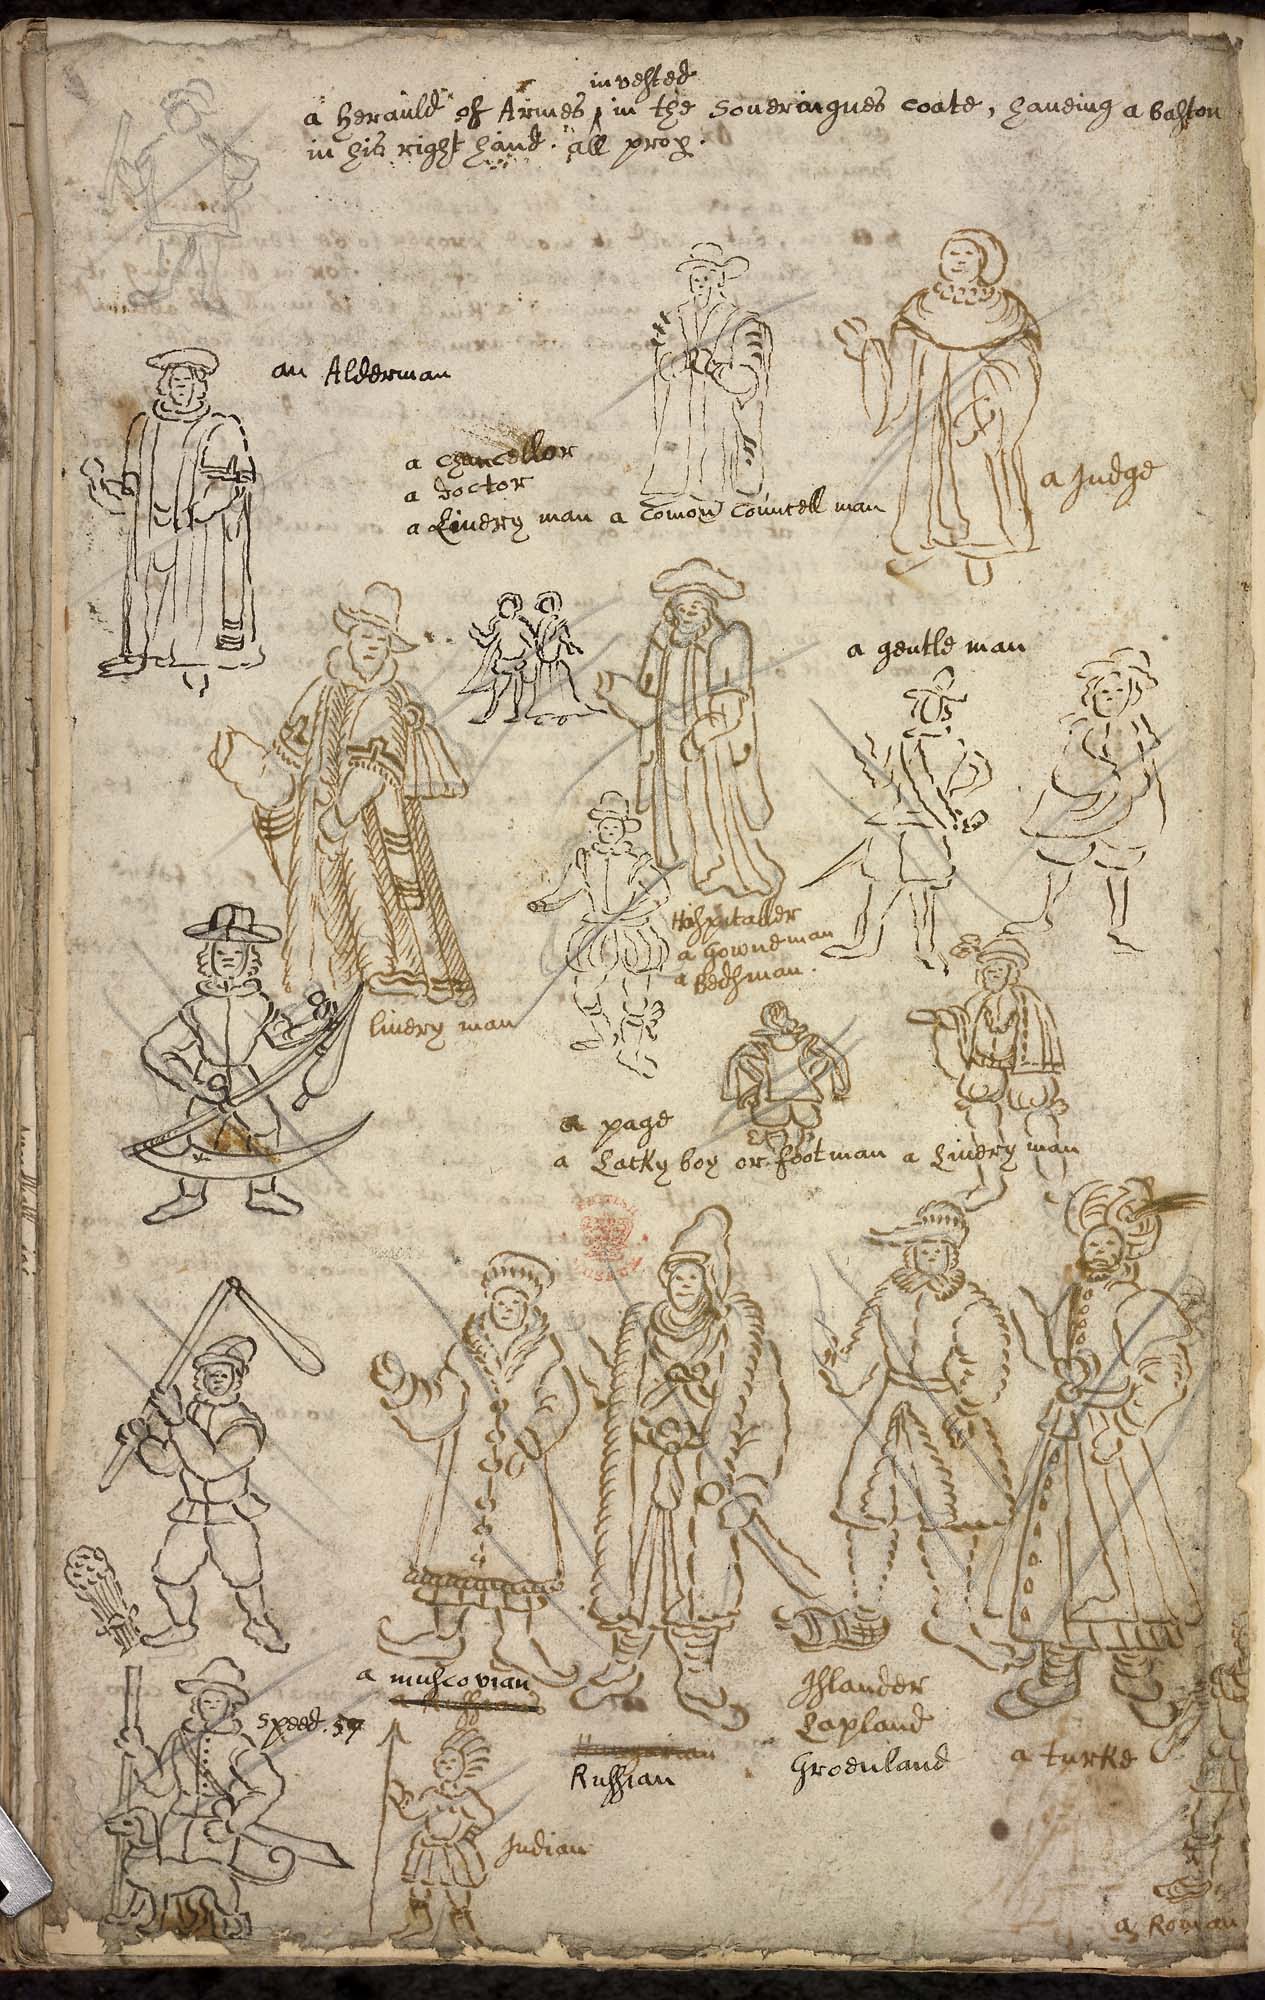 invested
a Herauld of Armes ‸ in the Soveraignes coate, haveing a Baston
in his right hand. all prop.
an Alderman
a chancellor
a doctor
a Livery man a Comon Councell man
a Judge
a gentle man
Hospitaller
a Gowneman
a Bedsman.
livery man
a page
a Lacky boy or footman a Livery man
BRITISH
MUSEUM
a muscovian
a Russian
Speed. 57
Hungarian
Russian
Islander
Lapland
Groenland
a turke
Indian
a Roman